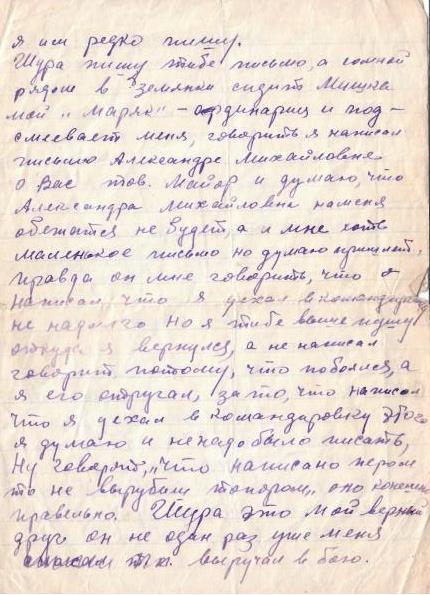 я им редко пишу.
Шура пишу тибе письмо, а сомной
рядом в землянки сидит Мишка
мой „Маряк" - ординариц и под-
смеевает меня, говорить я написал
письмо Александре Михайловне
о Вас тов. Майор и думаю, что
Александра Михайловна наменя
обежатся не будет, а и мне хоть
маленькое письмо но думаю пришлет.
правда он мне говорить, что
написал, что я уехал в командировку
не надолго но я тибе выше пишу
откуда я вернулся, а не написал
говорит потому, что побоялся, а
я его отругал, за то, что написал
что я уехал в командировку этого
я думаю и ненадобыло писать,
Ну говорят, „что написано пером
то не вырубиш топором" оно конешно
правельно. Шура это мой верный
друг он не один раз уже меня
выручал в бою.